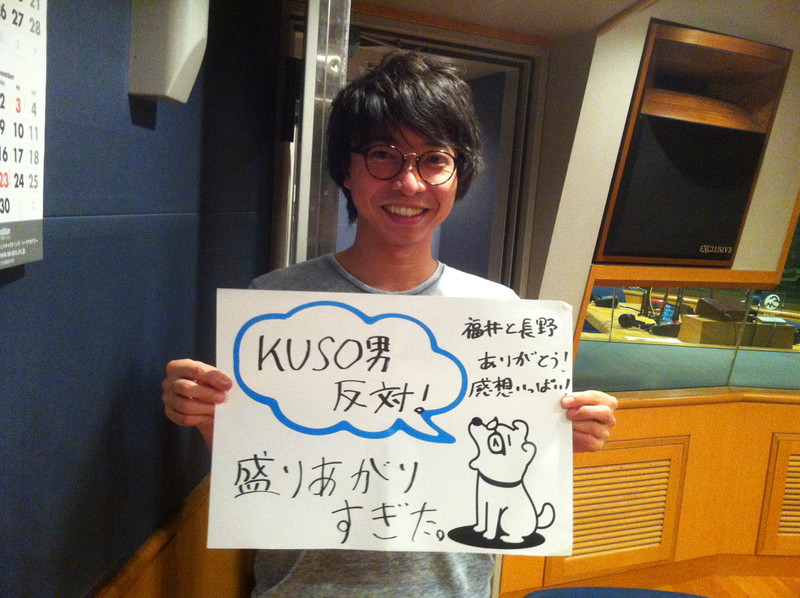 21
26 27 28
3
2 3 4
9 10 11
16 17 18
23 24 25
30
KUSO男
反対！
福井と長野
ありがとう！
感想いっぱい！
盛りあがり
すぎた。
EXCLUSIVE